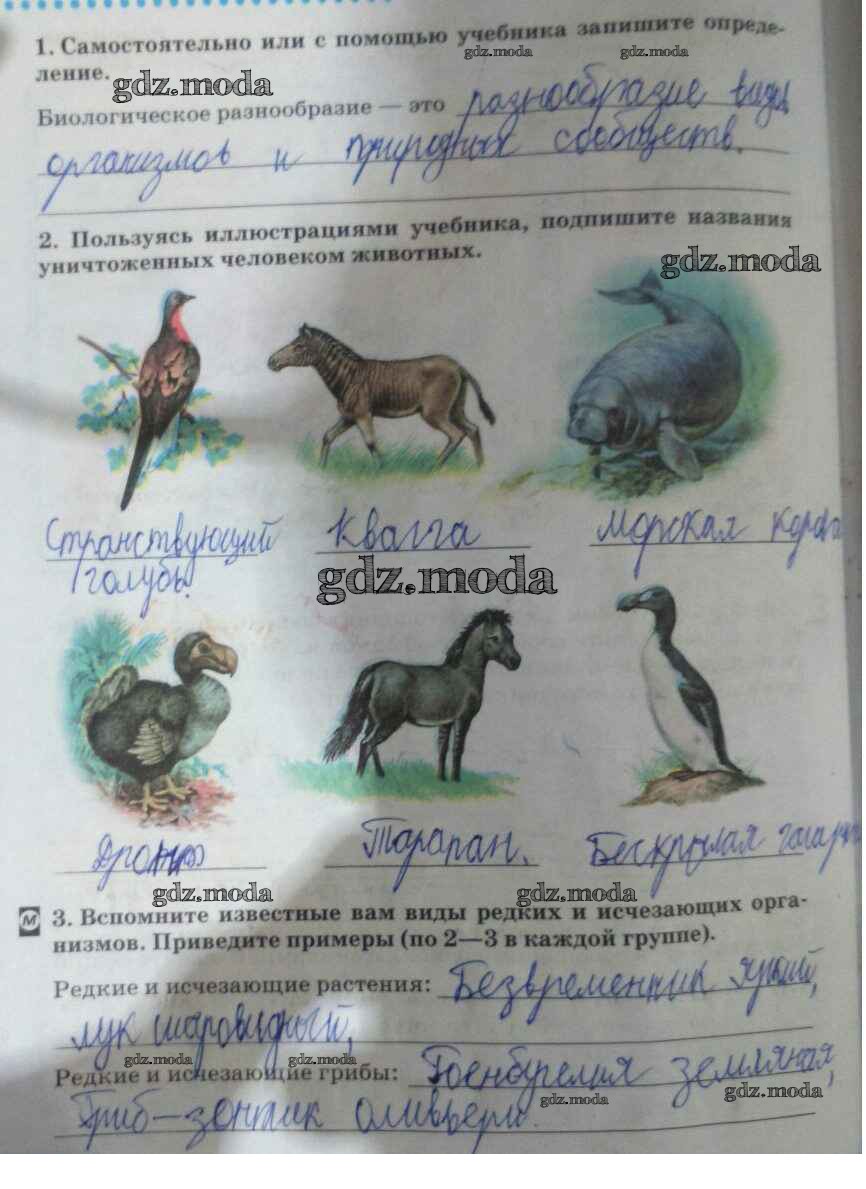 1. Самостоятельно или с помощью учебника запишите опреде-
gdz.moda gdz.moda
ление.
gdz.moda
Биологическое разнообразие — это разнообразие видов
организмов и природных сообществ.
2. Пользуясь иллюстрациями учебника, подпишите названия
уничтоженных человеком животных.
gdz.moda
Странствующий Квагга Морская корова
голубь.
gdz.moda
Дронт Тарапан. Бескрылая гагарка
gdz.moda gdz.moda
М 3. Вспомните известные вам виды редких и исчезающих орга-
низмов. Приведите примеры (по 2—3 в каждой группе).
Редкие и исчезающие растения: Безвременник яркий,
лук шаровидный,
gdz.moda gdz.moda
Редкие и исчезающие грибы: Гоенбуелия земляная,
gdz.moda gdz.moda
Гриб-зонтик оливьери.